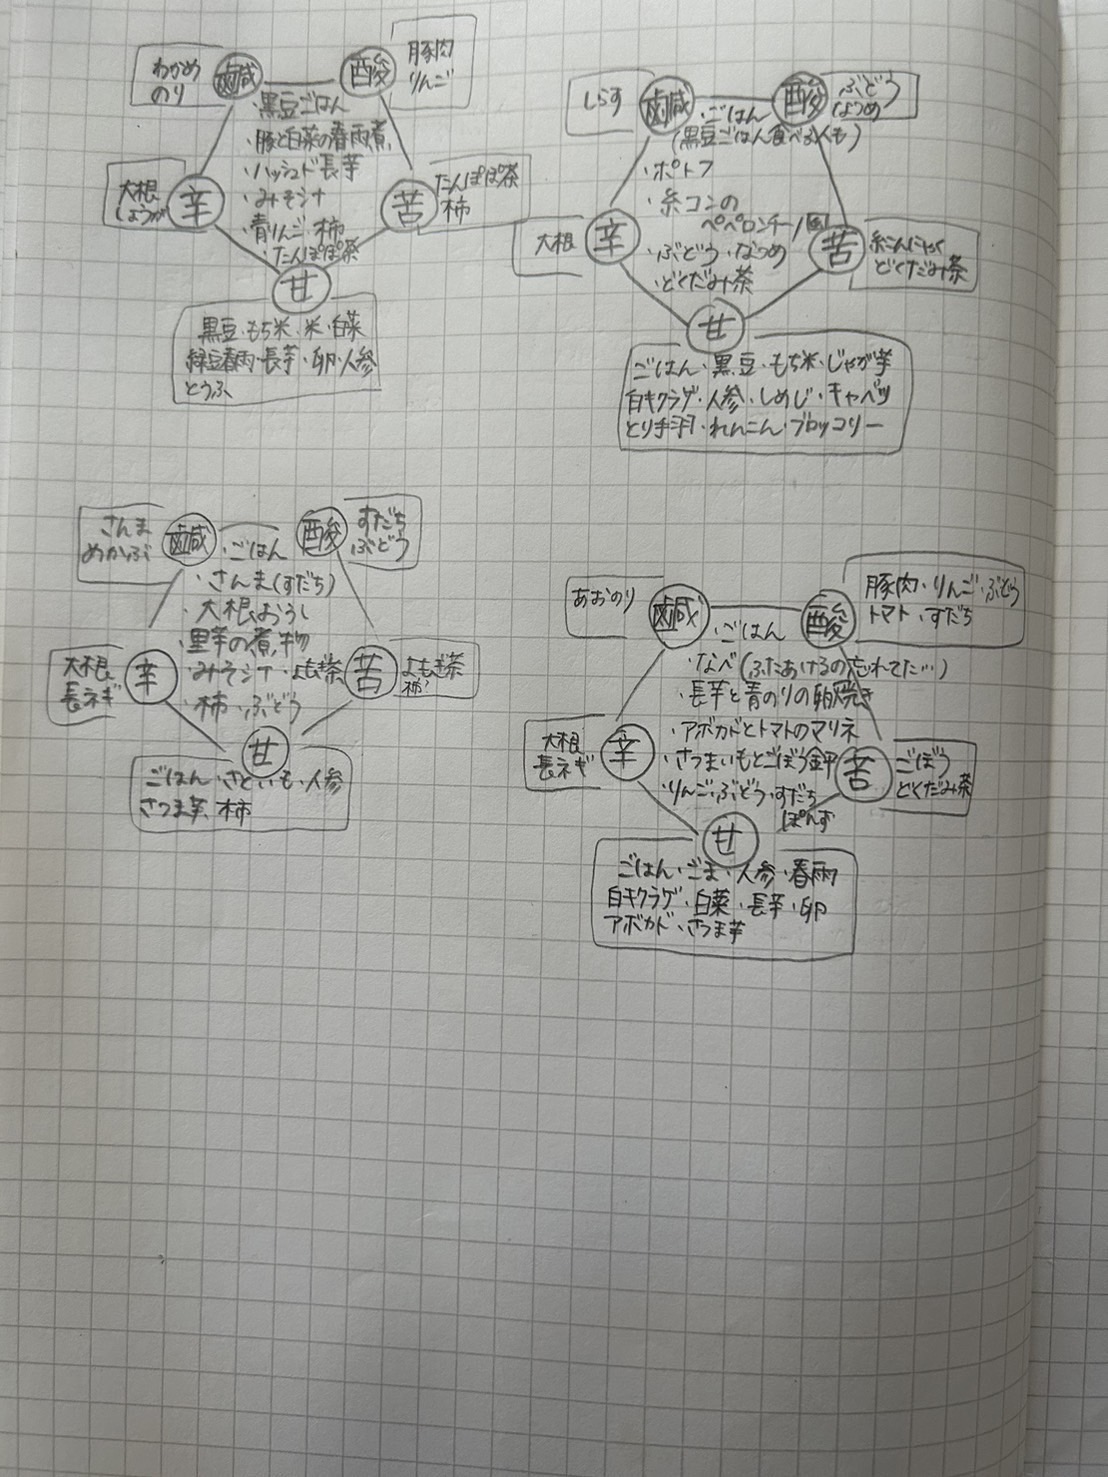 わかめ
のり
鹹
酸
豚肉
りんご
・黒豆ごはん
・豚と白菜の春雨煮
・ハッシュド長芋
・みそシナ
・青りんご・柿
・たんぽぽ茶
大根
しょうが
辛
苦
たんぽぽ茶
柿
甘
黒豆・もち米・米・白菜
緑豆春雨・長芋・卵・人参
とうふ
しらす
鹹
酸
ぶどう
なつめ
・ごはん
(黒豆ごはん食べる人も)
・ポトフ
・糸コンの
ペペロンチーノ風
・ぶどう・なつめ
・どくだみ茶
大根
辛
苦
糸こんにゃく
どくだみ茶
甘
ごはん・黒豆・もち米・じゃが芋
白キクラゲ・人参・しめじ・キャベツ
とり手羽・れんこん・ブロッコリー
さんま
めかぶ
鹹
酸
すだち
ぶどう
・ごはん
・さんま(すだち)
・大根おろし
・里芋の煮物
・みそシナ・よもぎ茶
・柿・ぶどう
大根
長ネギ
辛
苦
よもぎ茶
柿
甘
ごはん・さといも・人参
さつま芋、柿
あおのり
鹹
酸
豚肉・りんご・ぶどう
トマト・すだち
・ごはん
・なべ(ふたあけるの忘れてた…)
・長芋と青のりの卵焼き
・アボカドとトマトのマリネ
・さつまいもとごぼう金平
・りんご・ぶどう・すだち
ぽんず
大根
長ネギ
辛
苦
ごぼう
どくだみ茶
甘
ごはん・ごま・人参・春雨
白キクラゲ・白菜・長芋・卵
アボカド・さつま芋